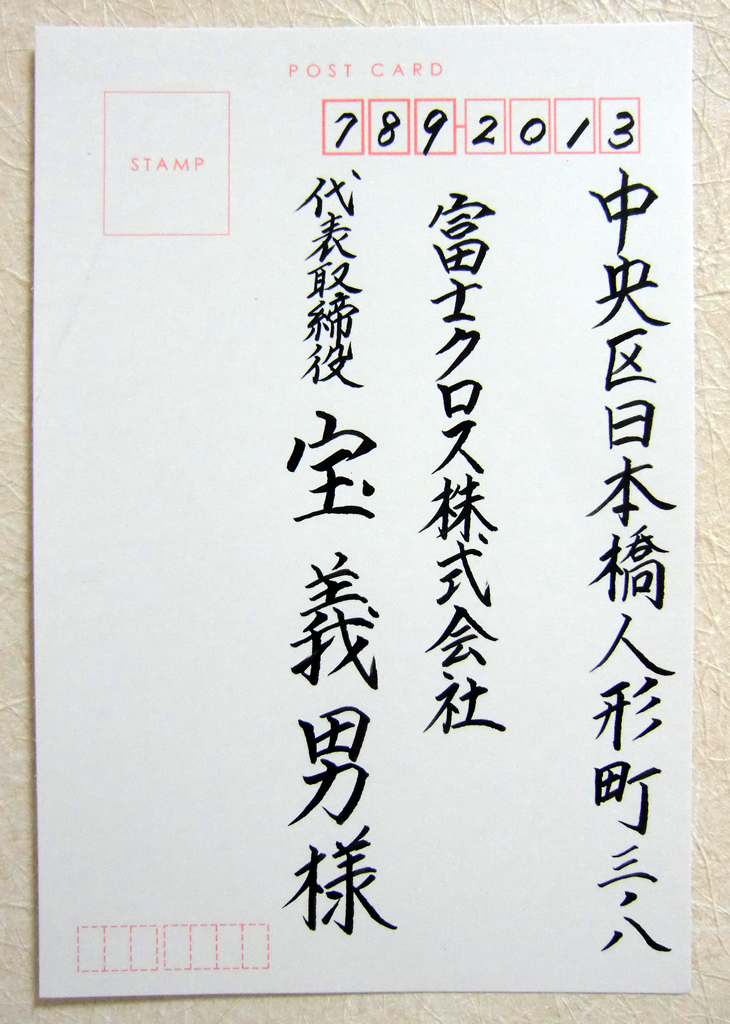 POST CARD
STAMP
789-2013
中央区日本橋人形町三ノ八
富士クロス株式会社
代表取締役 宝義男様